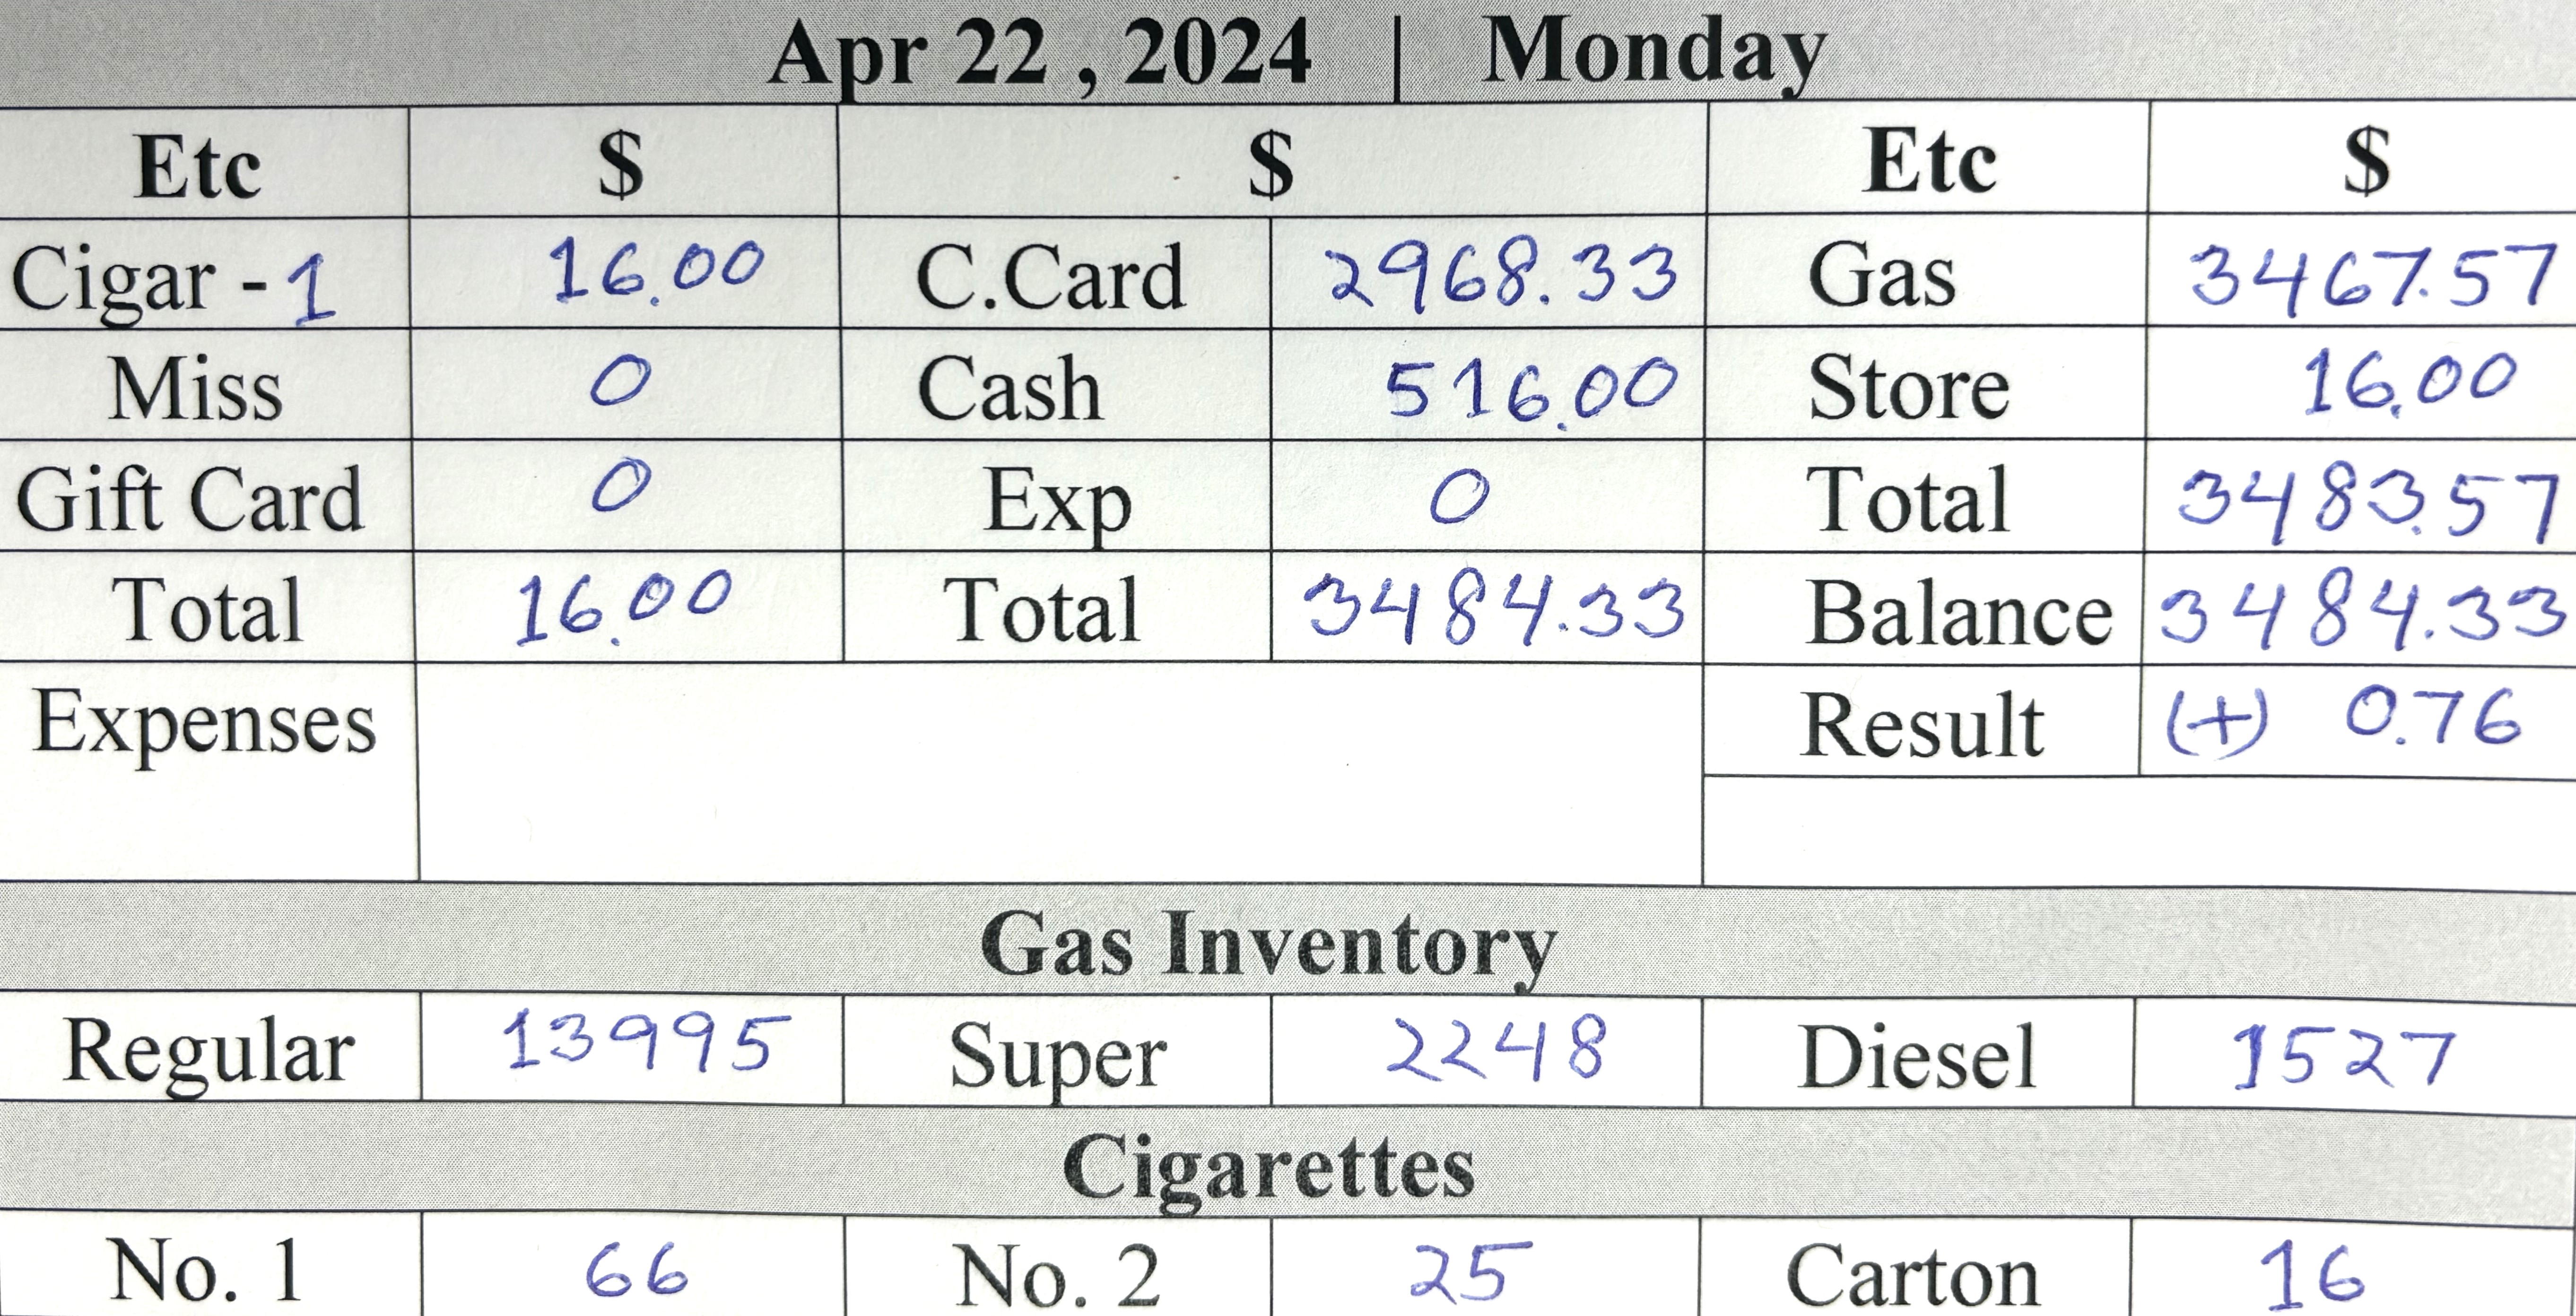 Apr 22 , 2024 | Monday
Etc $ $ Etc $
Cigar - 1 16.00 C.Card 2968.33 Gas 3467.57
Miss 0 Cash 516.00 Store 16.00
Gift Card 0 Exp 0 Total 3483.57
Total 16.00 Total 3484.33 Balance 3484.33
Expenses Result (+) 0.76
Gas Inventory
Regular 13995 Super 2248 Diesel 1527
Cigarettes
No. 1 66 No. 2 25 Carton 16